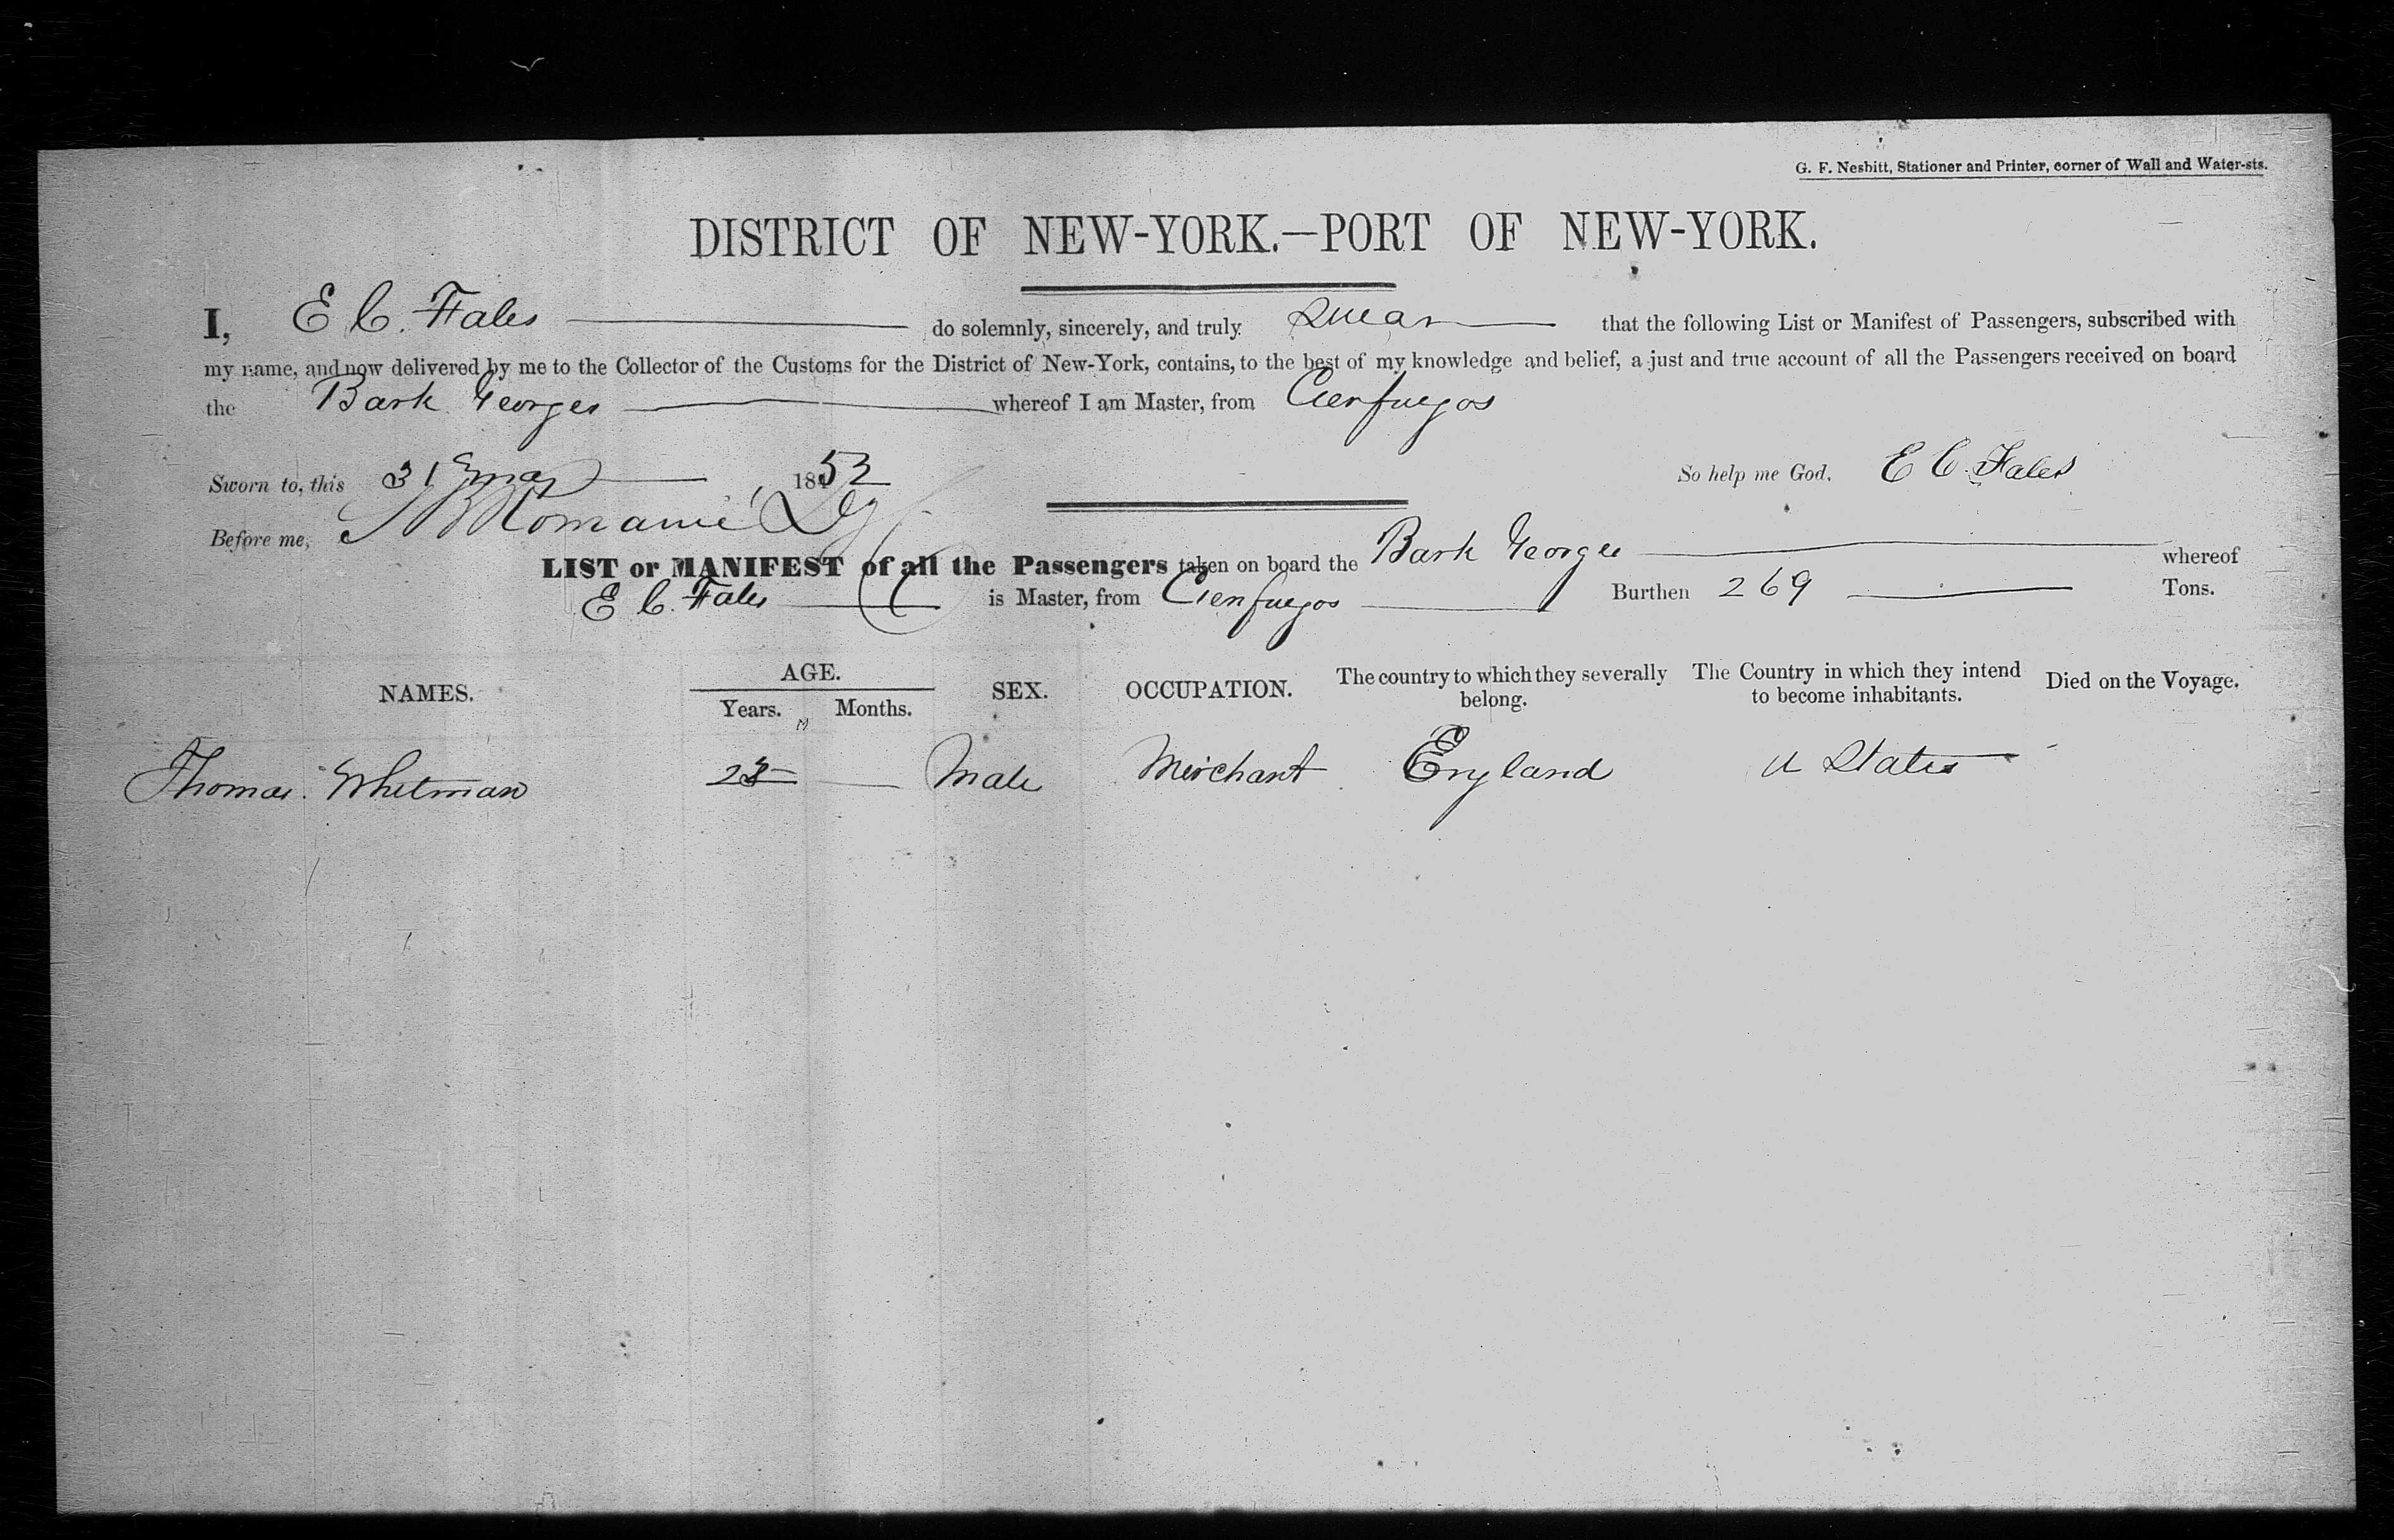 G. F. Nesbitt, Stationer and Printer, corner of Wall and Water-sts.
DISTRICT OF NEW-YORK.—PORT OF NEW-YORK.
I, E C. Fales do solemnly, sincerely, and truly swear that the following List or Manifest of Passengers, subscribed with
my name, and now delivered by me to the Collector of the Customs for the District of New-York, contains, to the best of my knowledge and belief, a just and true account of all the Passengers received on board
the Bark Georges whereof I am Master, from Cienfuegos
Sworn to, this 31 May 1853 So help me God. E C. Fales
Before me,
LIST or MANIFEST of all the Passengers taken on board the Bark Georges whereof
E C. Fales is Master, from Cienfuegos Burthen 269 Tons.
NAMES. AGE. SEX. OCCUPATION. The country to which they severally belong. The Country in which they intend to become inhabitants. Died on the Voyage.
Years. Months.
Thomas Whetman Male Merchant England U States